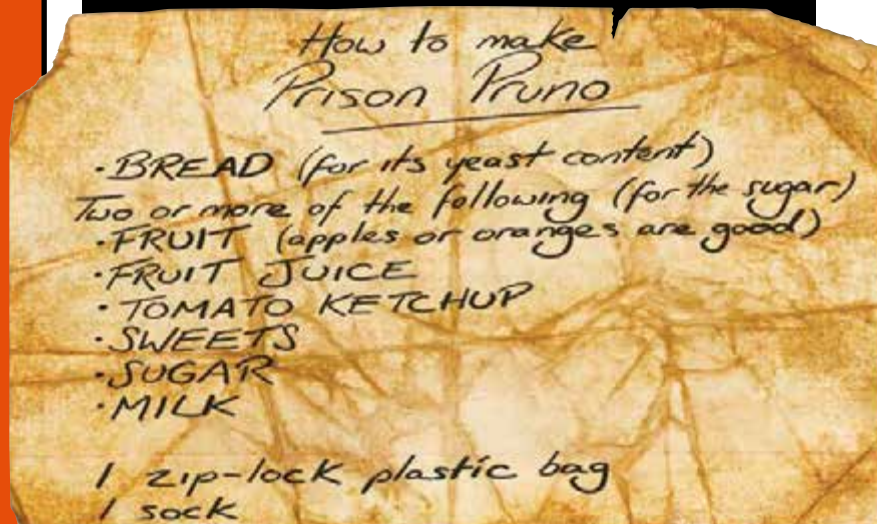 How to make
Prison Pruno
• BREAD (for its yeast content)
Two or more of the following (for the sugar)
• FRUIT (apples or oranges are good)
• FRUIT JUICE
• TOMATO KETCHUP
• SWEETS
• SUGAR
• MILK
1 zip-lock plastic bag
1 sock